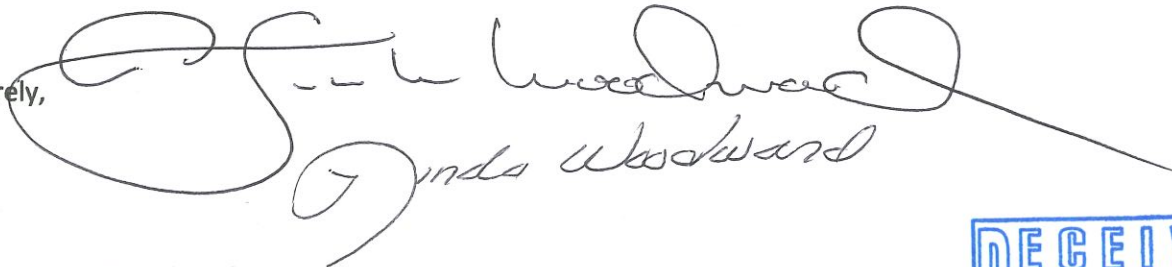 rely, Woodward
Linda Woodward
RECEIV